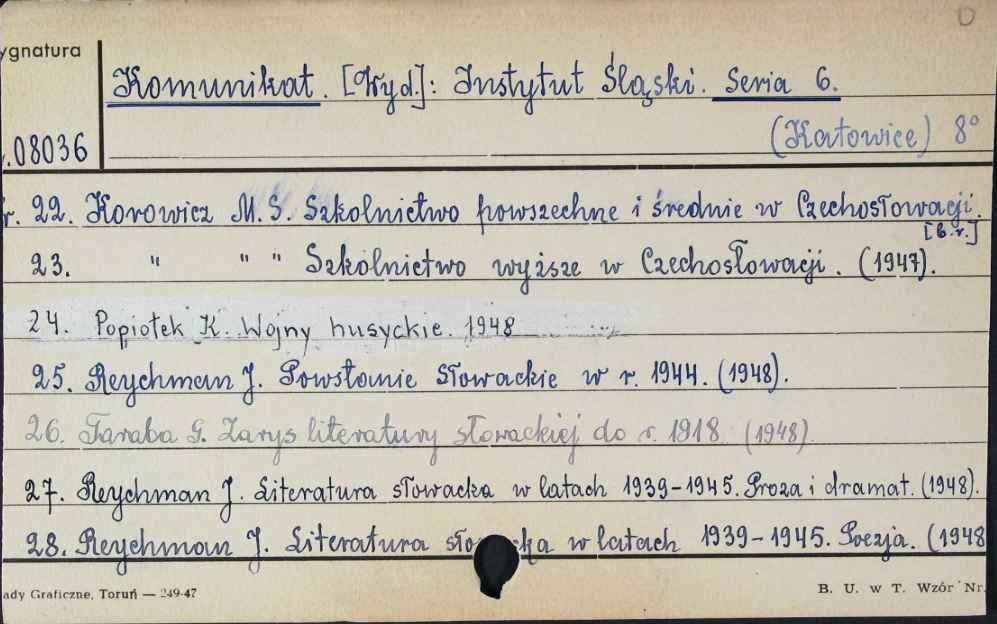 ygnatura
Komunikat. [Wyd.]: Instytut Śląski. Seria 6.
.08036
(Katowice) 8°
r. 22. Korowicz M. S. Szkolnictwo powszechne i średnie w Czechosłowacji.
[b.r.]
23. " " " Szkolnictwo wyższe w Czechosłowacji. (1947).
24. Popiołek K. Wojny husyckie 1948
25. Reychman J. Powstanie Słowackie w r. 1944. (1948).
26. Taraba G. Zarys literatury słowackiej do r. 1918. (1948)
27. Reychman J. Literatura słowacka w latach 1939-1945. Proza i dramat. (1948).
28. Reychman J. Literatura sło ka w latach 1939-1945. Poezja. (1948
ady Graficzne, Toruń — 249-47
B. U. w T. Wzór Nr.